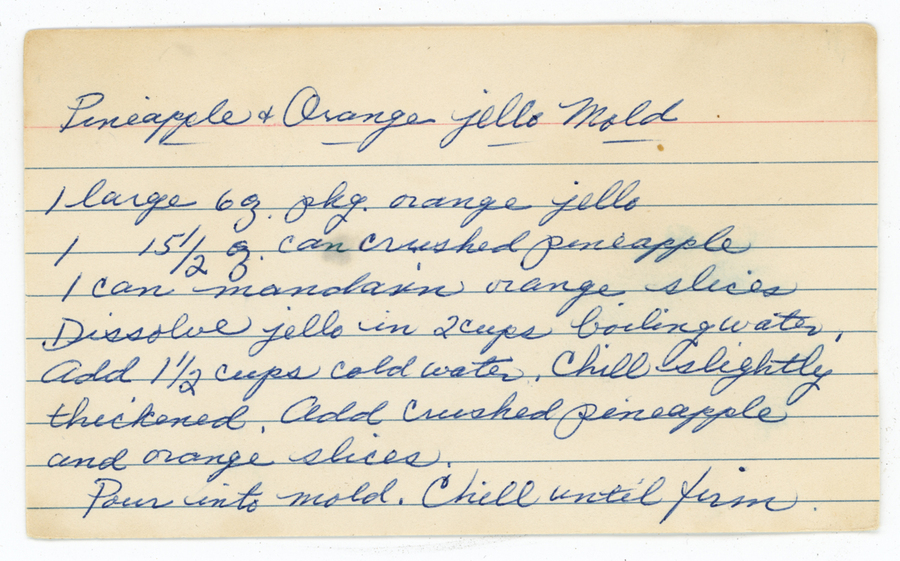 Pineapple & Orange jello Mold
1 large 6 oz. pkg. orange jello
1 15 1/2 oz. can crushed pineapple
1 can mandarin orange slices
Dissolve jello in 2 cups boiling water.
Add 1 1/2 cups cold water. Chill slightly
thickened. Add crushed pineapple
and orange slices.
Pour into mold. Chill until firm.